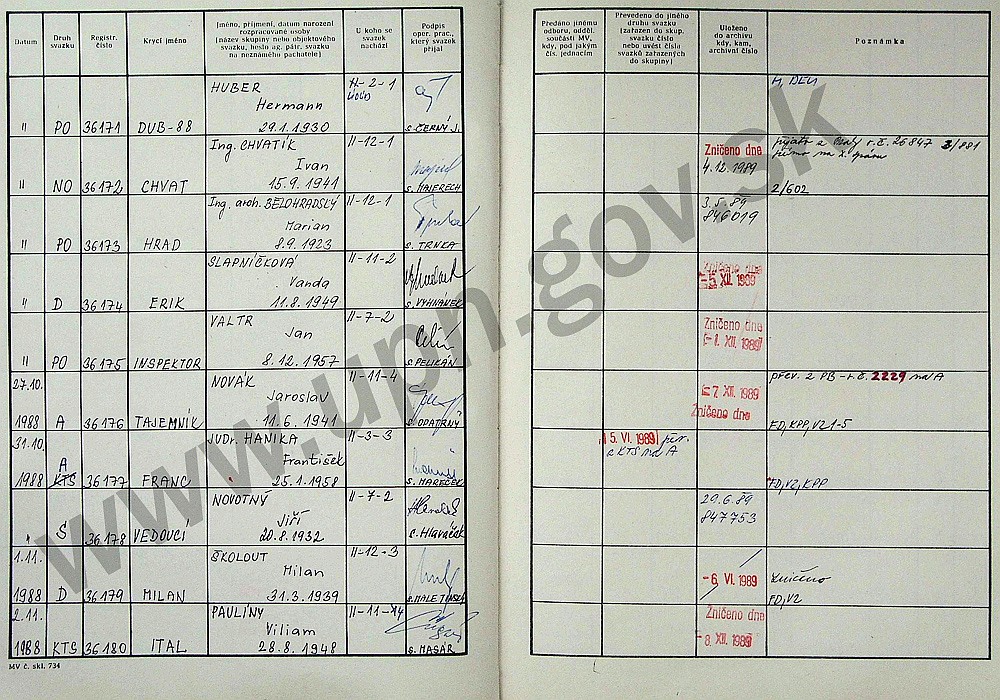 Datum
Druh svazku
Registr. číslo
Krycí jméno
Jméno, příjmení, datum narození
rozpracované osoby
(název skupiny nebo objektového
svazku, heslo ag. pátr. svazku
na neznámého pachatele)
U koho se
svazek
nachází
Podpis
oper. prac.,
který svazek
přijal
Předáno jinému
odboru, odděl.
součásti MV,
kdy, pod jakým
čís. jednacím
Převedeno do jiného
druhu svazku
(zařazen do skup.
svazku číslo
nebo uvést číslo
svazků zařazených
do skupiny)
Uloženo
do archivu
kdy, kam,
archivní číslo
Poznámka
HUBER II-2-1
Hermann
" PO 36171 DUB-88 29.1.1930 s. ČERNÝ J.
Ing. CHVATÍK II-12-1
Ivan Zničeno dne
" NO 36172 CHVAT 15.9.1941 4.12.1989
Ing. arch. BĚLOHRADSKÝ II-12-1 3.5.89 2/602
Marian 846019
" PO 36173 HRAD 8.9.1923 s. TRNKA
SLAPNIČKOVÁ II-11-2
Vanda Zničeno dne
" D 36174 ERIK 11.8.1949 s. VYHNÁNEK -5. XII. 1989
VALTR II-7-2
Jan Zničeno dne
" PO 36175 INSPEKTOR 8.12.1957 s. PELIKÁN -1. XII. 1989
27.10. NOVÁK II-11-4 přev. z PB - r.č. 2229 na A
Jaroslav -7. XII. 1989
1988 A 36176 TAJEMNÍK 11.6.1941 s. OPATRNÝ Zničeno dne FD, KPP, VZ1-5
31.10. JUDr. HANIKA II-3-3 15. VI. 1989 přev.
A František z KTS na A
1988 KTS 36177 FRANC 25.1.1958 s. MAREČEK FD, VZ, KPP
NOVOTNÝ II-7-2 29.6.89
Jiří 847753
" S 36178 VEDOUCÍ 20.8.1932 s. Hlaváček
1.11. ŠKOLOUT II-12-3
Milan -6. VI. 1989 Zničeno
1988 D 36179 MILAN 31.3.1939 FD, VZ
2.11. PAULÍNY II-11-14 Zničeno dne
Viliam -8. XII. 1989
1988 KTS 36180 ITAL 28.8.1948 s. MASÁR
MV č. skl. 734
www.upn.gov.sk